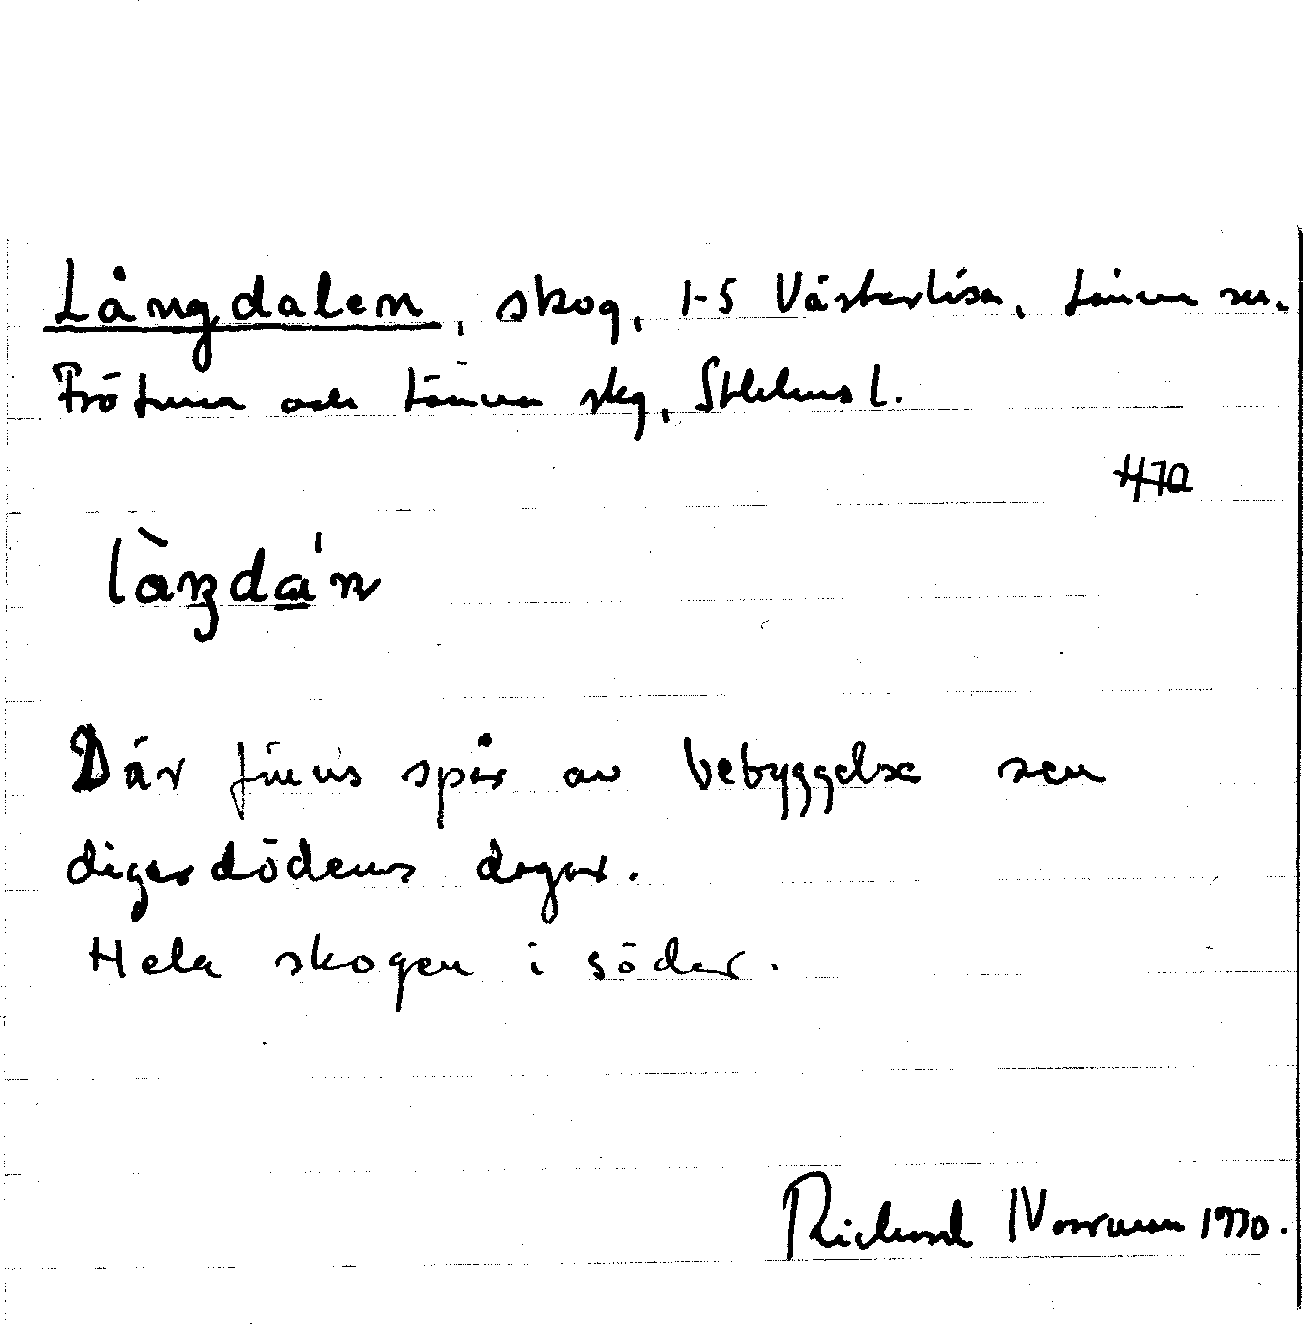 Långdalen, skog, 1-5 Västerlisa, Länna sn.
Frötuna och Länna skg, Sthlms l.
H70
làŋda'n
Där finns spår av bebyggelse sen
digerdödens dagar.
Hela skogen i söder.
Richard Norrman 1970.